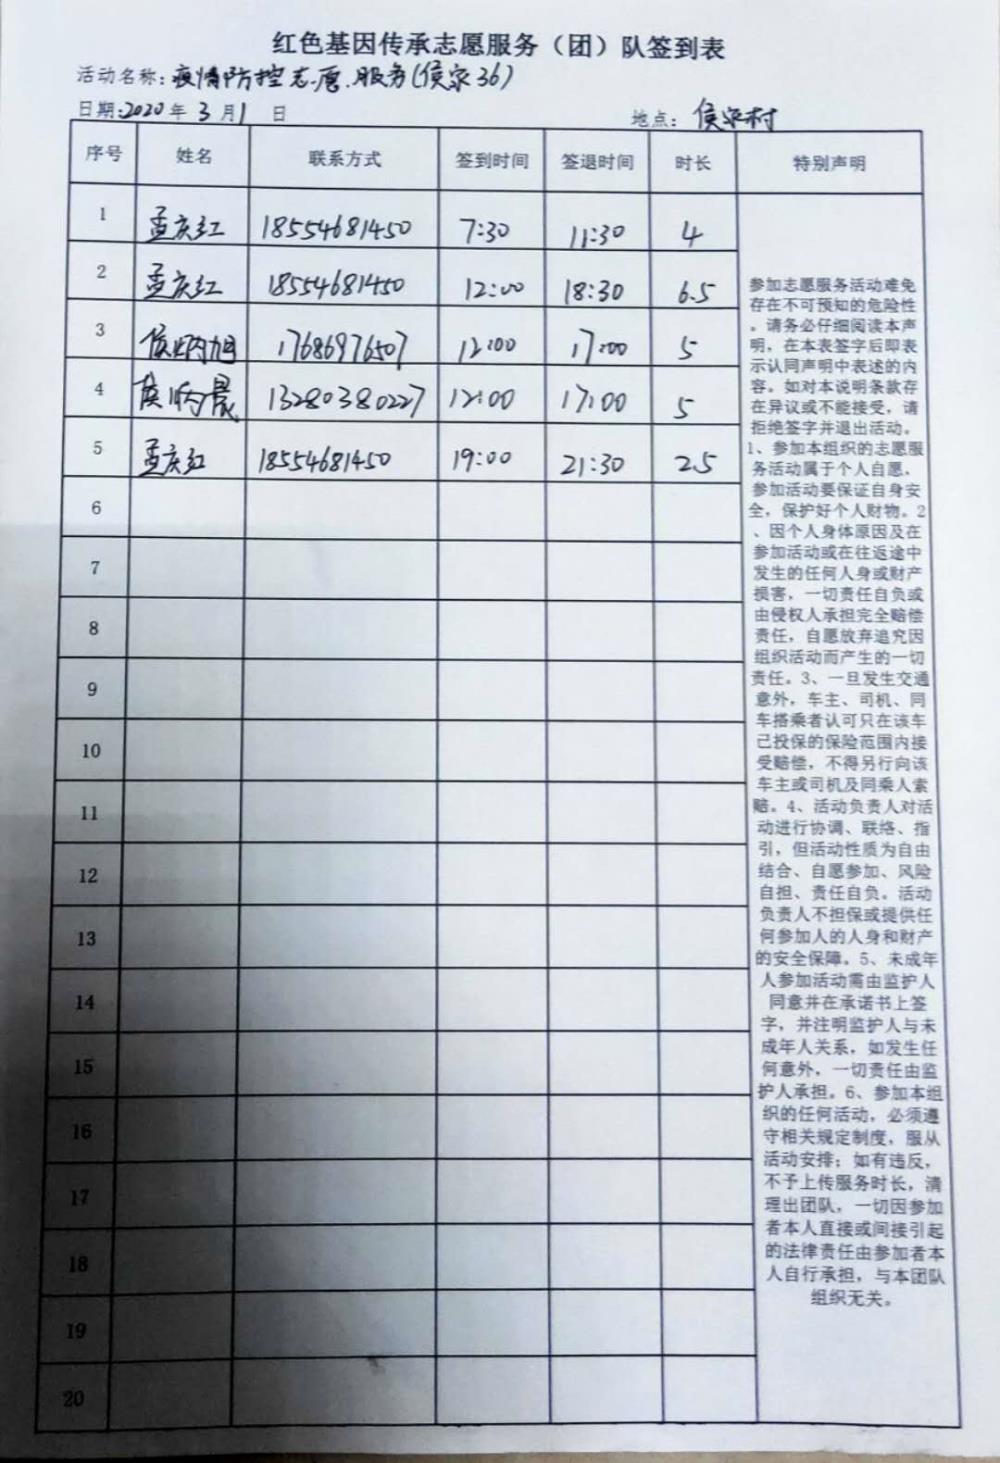 红色基因传承志愿服务（团）队签到表
活动名称：疫情防控志愿服务(侯家36)
日期：2020年3月1日 地点：侯家村
序号 姓名 联系方式 签到时间 签退时间 时长 特别声明
1 孟庆红 18554681450 7:30 11:30 4
2 孟庆红 18554681450 12:00 18:30 6.5
3 侯炳旭 17686976507 12:00 17:00 5
4 侯炳晨 13280380227 12:00 17:00 5
5 孟庆红 18554681450 19:00 21:30 2.5
6
7
8
9
10
11
12
13
14
15
16
17
18
19
20
参加志愿服务活动难免
存在不可预知的危险性
。请务必仔细阅读本声
明，在本表签字后即表
示认同声明中表述的内
容。如对本说明条款存
在异议或不能接受，请
拒绝签字并退出活动。
1、参加本组织的志愿服
务活动属于个人自愿，
参加活动要保证自身安
全，保护好个人财物。2
、因个人身体原因及在
参加活动或在往返途中
发生的任何人身或财产
损害，一切责任自负或
由侵权人承担完全赔偿
责任，自愿放弃追究因
组织活动而产生的一切
责任。3、一旦发生交通
意外，车主、司机、同
车搭乘者认可只在该车
已投保的保险范围内接
受赔偿，不得另行向该
车主或司机及同乘人索
赔。4、活动负责人对活
动进行协调、联络、指
引，但活动性质为自由
结合、自愿参加、风险
自担、责任自负。活动
负责人不担保或提供任
何参加人的人身和财产
的安全保障。5、未成年
人参加活动需由监护人
同意并在承诺书上签
字，并注明监护人与未
成年人关系，如发生任
何意外，一切责任由监
护人承担。6、参加本组
织的任何活动，必须遵
守相关规定制度，服从
活动安排；如有违反，
不予上传服务时长，清
理出团队，一切因参加
者本人直接或间接引起
的法律责任由参加者本
人自行承担，与本团队
组织无关。